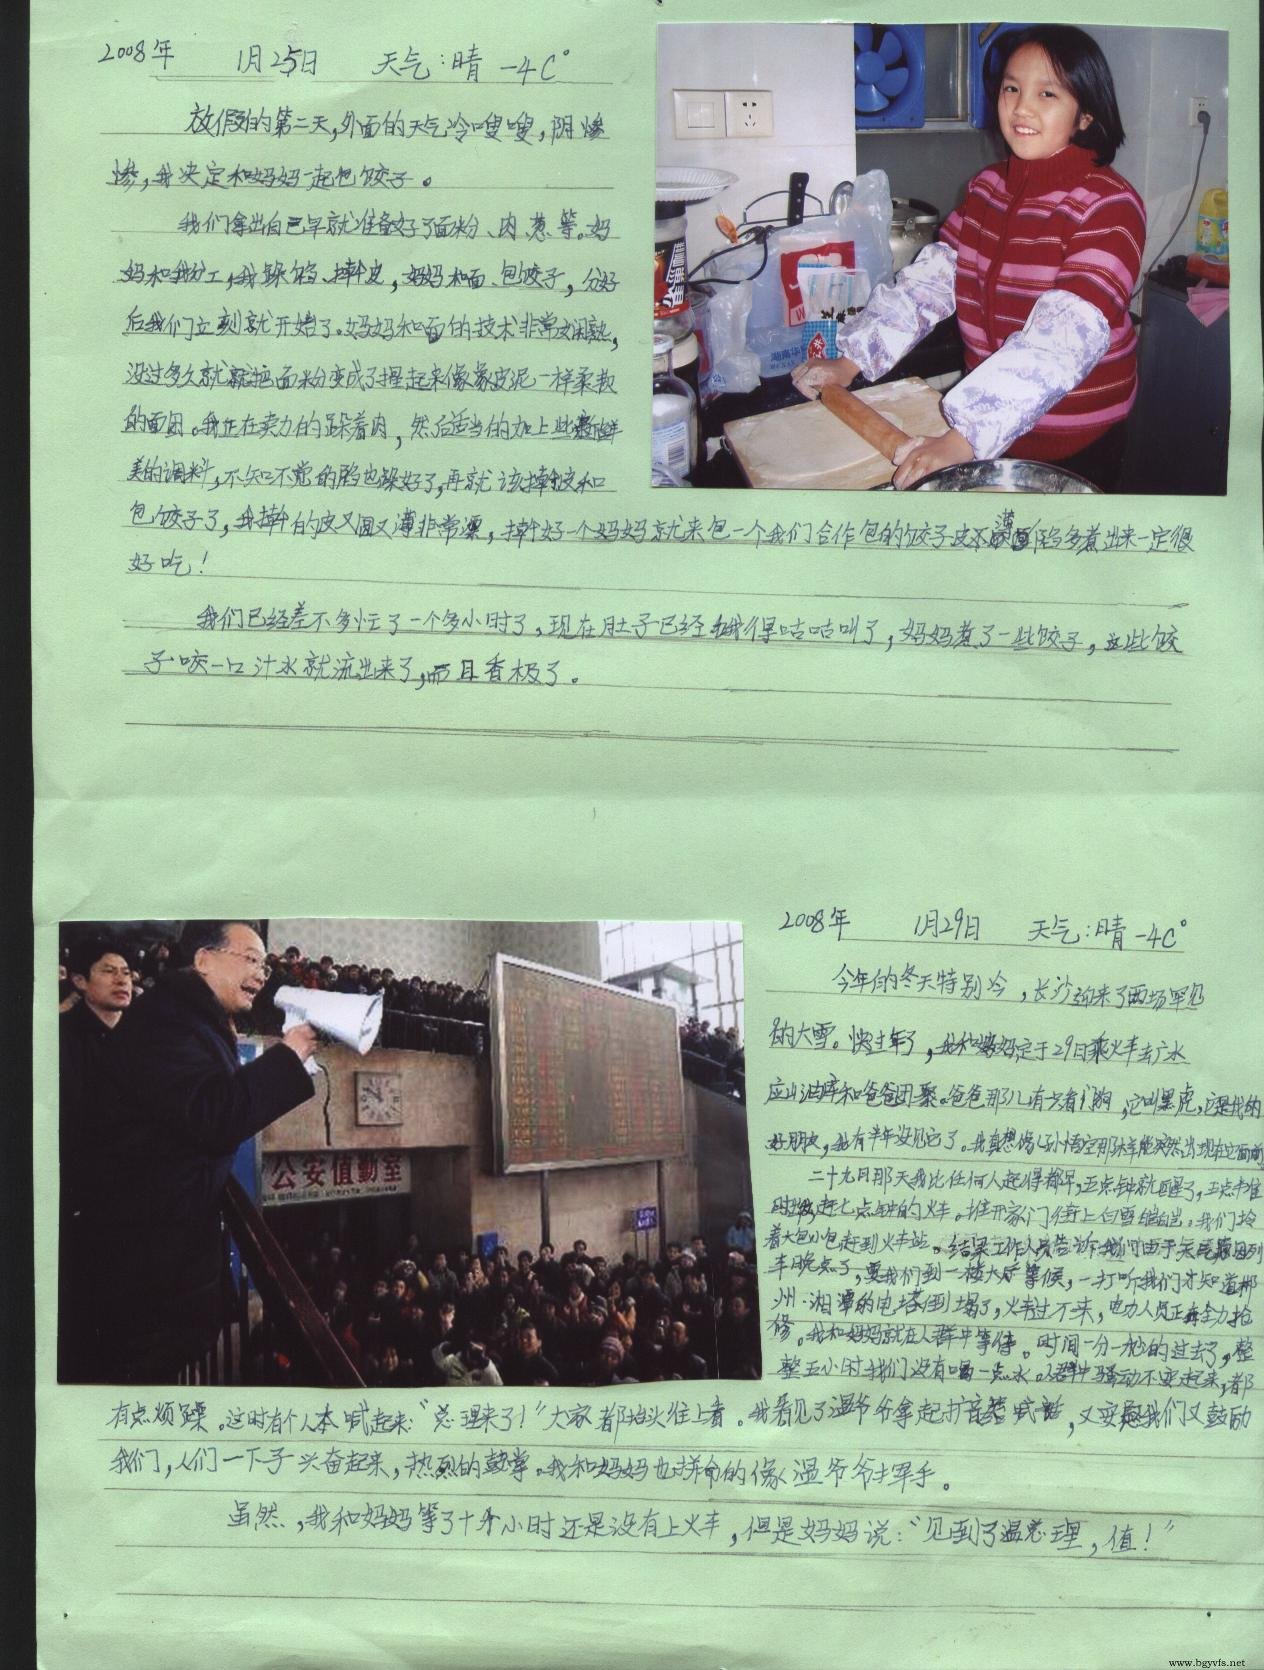 2008年 1月25日 天气:晴 -4C°
放假的第二天,外面的天气冷嗖嗖,阴惨
惨,我决定和妈妈一起包饺子。
我们拿出自己早就准备好了面粉、肉、葱、等。妈
妈和我分工,我跺馅、擀皮,妈妈和面、包饺子,分好
后我们立刻就开始了。妈妈和面的技术非常娴熟,
没过多久就把面粉变成了捏起来像橡皮泥一样柔软
的面团。我正在卖力的跺着肉,然后适当的加上些新鲜
美的调料,不知不觉的馅也跺好了,再就该擀皮和
包饺子了,我擀的皮又圆又薄非常漂,擀好一个妈妈就来包一个我们合作包的饺子皮薄馅多煮出来一定很
好吃!
我们已经差不多忙了一个多小时了,现在肚子已经饿得咕咕叫了,妈妈煮了一些饺子,这些饺
子咬一口汁水就流出来了,而且香极了。
2008年 1月29日 天气:晴 -4C°
今年的冬天特别冷,长沙迎来了两场罕见
的大雪。快过年了,我和妈妈定于29日乘火车去广水
应山油库和爸爸团聚。爸爸那儿有只看门狗,它叫黑虎,它是我的
好朋友,我有半年没见它了。我真想像孙悟空那样能突然出现在它面前
二十九日那天我比任何人起得都早,五点钟就醒了,五点半准
时出发,赶七点钟的火车。推开家门街上白雪皑皑。我们拎
着大包小包赶到火车站。结果工作人员告诉我们由于天气原因列
车晚点了,要我们到一楼大厅等候,一打听我们才知道郴
州·湘潭的电塔倒塌了,火车过不来,电力人员正在全力抢
修。我和妈妈就在人群中等待。时间一分一秒的过去了,整
整五小时我们没有喝一点水。人群中骚动不安起来,都
有点烦躁。这时有个人本喊起来:“总理来了!”大家都抬头往上看。我看见了温爷爷拿起扩音器喊话,又安慰我们又鼓励
我们,人们一下子兴奋起来,热烈的鼓掌。我和妈妈也拼命的像温爷爷挥手。
虽然,我和妈妈等了十个小时还是没有上火车,但是妈妈说:“见到了温总理,值!”
公安值勤室
www.bgyvfs.net